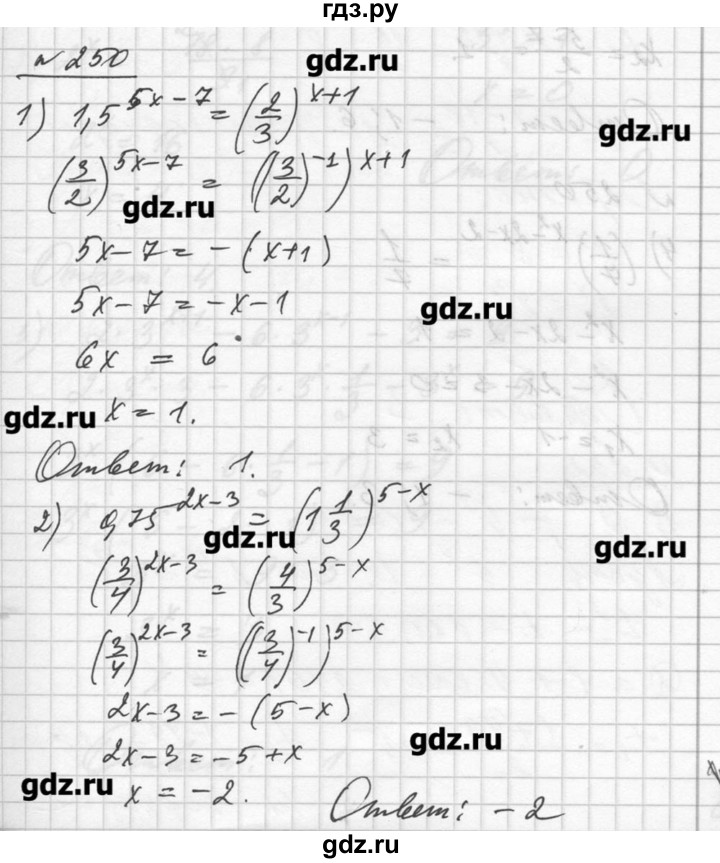 гдз.ру
№ 250
gdz.ru
1) 1,5^(5x-7) = (2/3)^(x+1)
gdz.ru
(3/2)^(5x-7) = ((3/2)^(-1))^(x+1)
gdz.ru
5x-7 = -(x+1)
5x-7 = -x-1
gdz.ru
6x = 6
gdz.ru
x = 1.
Ответ: 1.
2) 0,75^(2x-3) = (1 1/3)^(5-x)
gdz.ru
gdz.ru
(3/4)^(2x-3) = (4/3)^(5-x)
(3/4)^(2x-3) = ((3/4)^(-1))^(5-x)
2x-3 = -(5-x)
gdz.ru
2x-3 = -5+x
gdz.ru
x = -2. Ответ: -2
gdz.ru